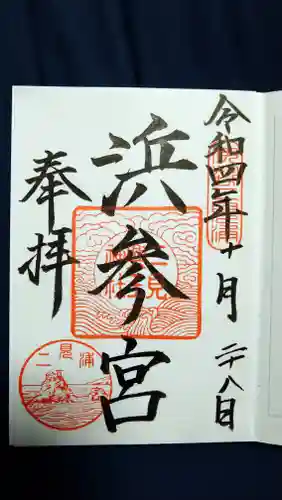 令和四年十月二十八日
浜参宮
奉拝
二見浦